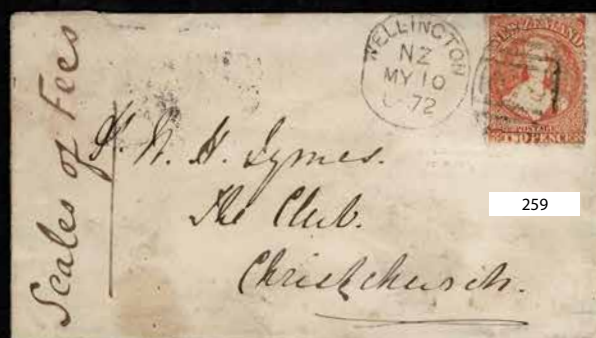 Scales of Fees
WELLINGTON
NZ
MY 10
72
NEW ZEALAND
POSTAGE
TWO PENCE
H. N. H. Symes.
The Club.
Christchurch.
259